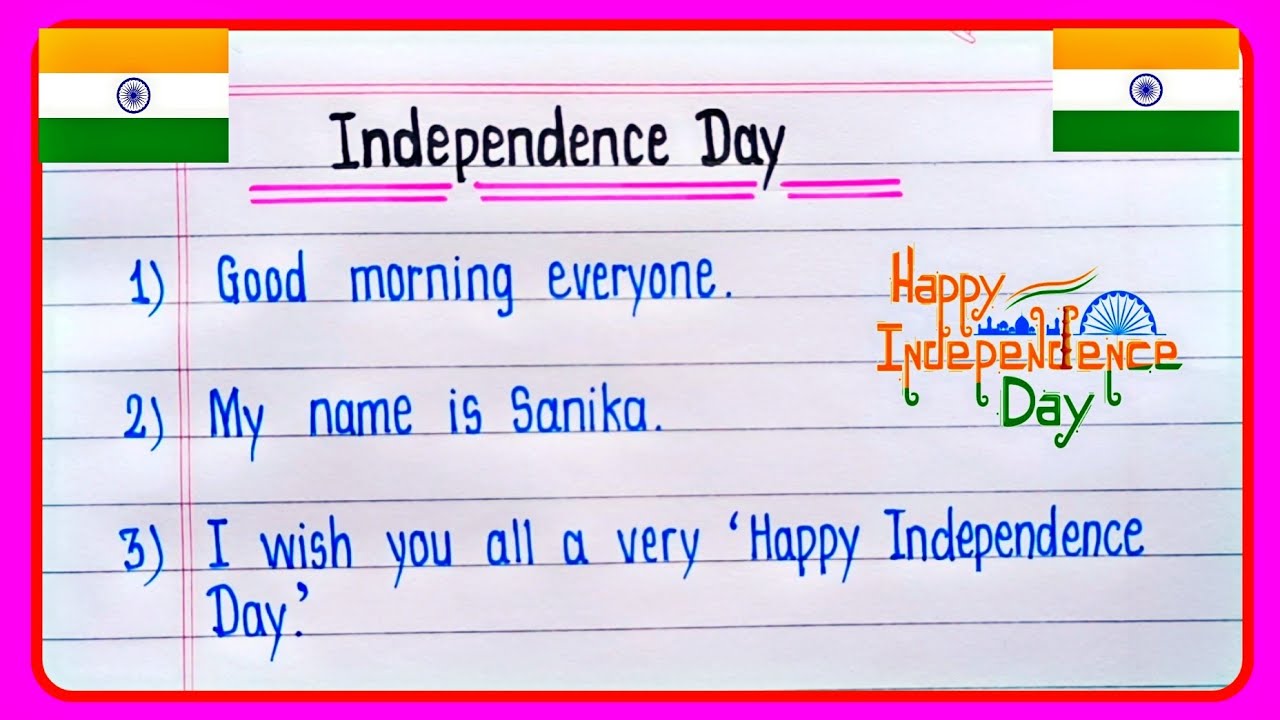 Independence Day
1) Good morning everyone.
2) My name is Sanika.
3) I wish you all a very ‘Happy Independence
Day.’
Happy
Independence
Day